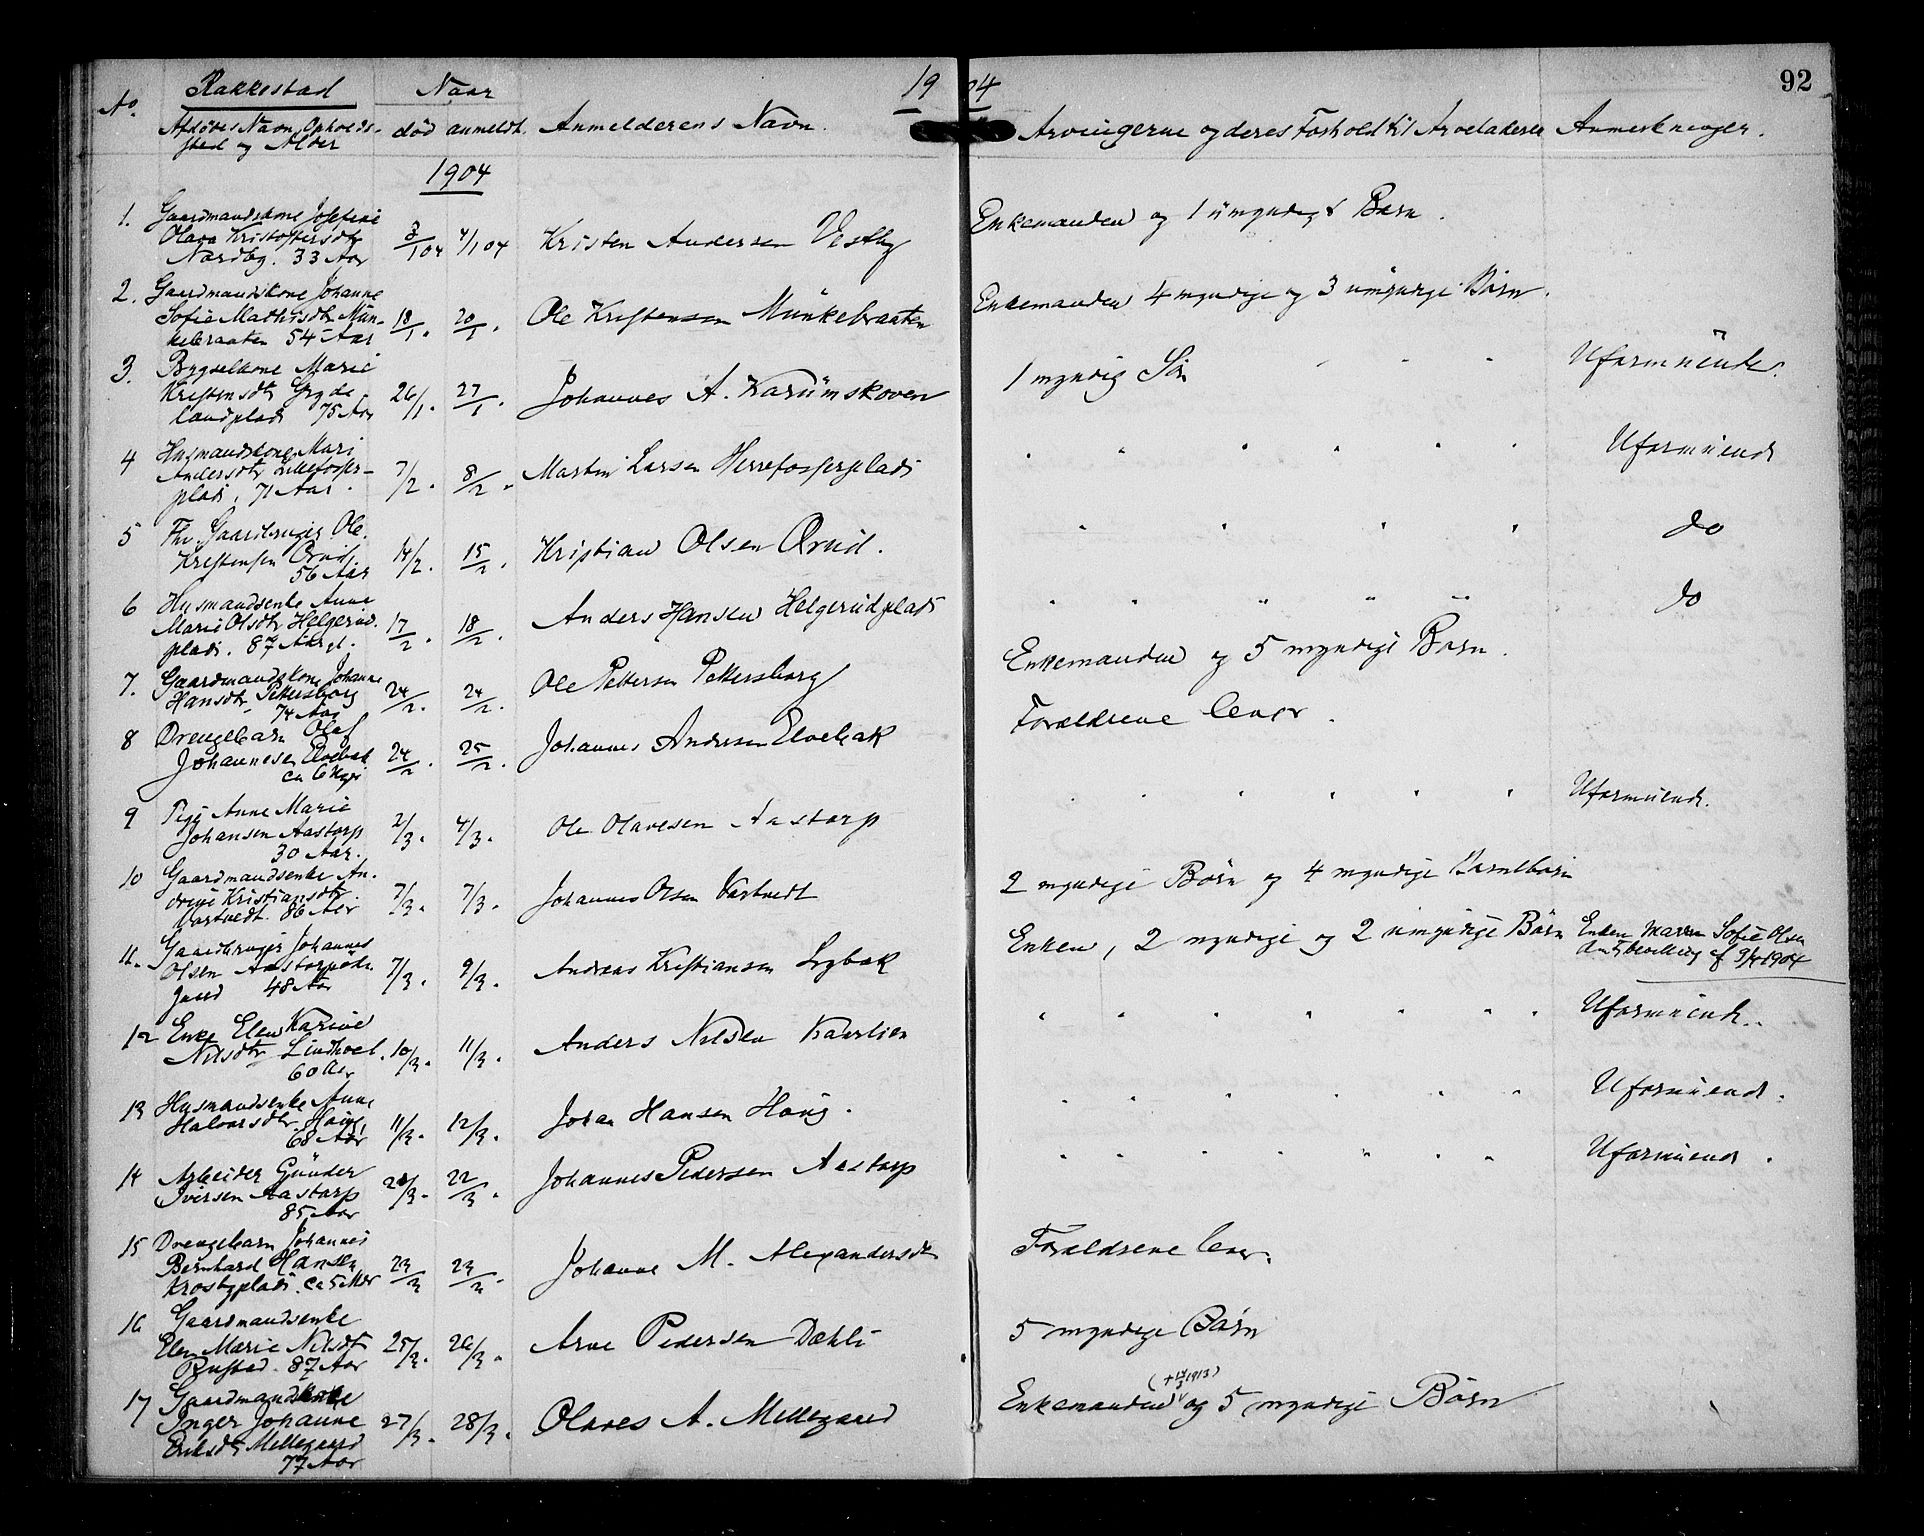 19 04
92
No. Rakkestad Naar
Afdødes Navn, Opholds- død anmeldt. Anmelderens Navn. Arvingerne og deres Forhold til Arveladeren Anmerkninger.
sted og Alder
1904
1. Gaardmandskone Josefine
Olava Kristoffersdtr 3/1 04 4/1 04 Kristen Andersen Vestby Enkemanden og 1 umyndigt Barn.
Nordby. 33 Aar
2. Gaardmandskone Johanne
Sofie Mathisdtr Mun- 18/1. 20/1. Ole Kristensen Munkebraaten Enkemanden 4 myndige og 3 umyndige Børn.
kebraaten 54 Aar
3. Bygselkone Marie
Kristensdtr Gryde- 26/1. 27/1. Johannes A. Karumskoven 1 myndig Søn " " " Uformuende.
landplads 75 Aar
4 Husmandskone Mari
Andersdtr Lillefosser- 7/2. 8/2. Martin Larsen Herrefosserplads " " " " " " Uformuende
plads, 71 Aar.
5 Fhv. Gaardbruger Ole
Kristensen Ørud 14/2. 15/2. Kristian Olsen Ørud. " " " " do
56 Aar
6 Husmandsenke Anne
Marie Olsdtr Helgerud- 17/2. 18/2. Anders Hansen Helgerudplads " " " " " do
plads. 87 Aar gl.
7. Gaardmandskone Johanne
Hansdtr. Pettersborg 24/2. 24/2. Ole Pettersen Pettersborg Enkemanden og 5 myndige Børn.
74 Aar
8 Drengebarn Olaf
Johannesen Elvebak 24/2. 25/2. Johannes Andersen Elvebak Forældrene lever.
ca 6 Uger
9 Pige Anne Marie
Johansen Aastorp 2/3. 4/3. Ole Olavesen Aastorp " " " " " " Uformuende.
30 Aar.
10 Gaardmandsenke An-
drine Kristiansdtr 7/3. 7/3. Johannes Olsen Kartvedt 2 myndige Børn og 4 myndige Barnebørn
86 Aar
11. Gaardbruger Johannes
Olsen Aastorpøde- 7/3. 9/3. Andreas Kristiansen Lybak Enken, 2 myndige og 2 umyndige Børn Enken Maren Sofie Olsen
gaard 48 Aar af 9/4 1904
12 Enke Elen Karine
Nilsdtr Lindhol. 10/3. 11/3. Anders Nilsen " " " " " " " Uformuende.
60 Aar
13 Husmandsenke Anne
Halvorsdtr. Haug, 11/3. 12/3. Johan Hansen Haug. " " " " " " Uformuende.
68 Aar
14 Arbeider Gunder
Iversen Aastorp 20/3. 22/3. Johannes Pedersen Aastorp " " " " " " " Uformuende.
85 Aar
15 Drengebarn Johannes
Bernhard Hansen 23/3 23/3. Johanne M. Alexandersdtr Forældrene lever.
Krosbyplads. ca 5 Mdr
16 Gaardmandsenke
Elen Marie Nilsdtr 25/3. 26/3. Arne Pedersen Dæhli 5 myndige Børn
Rustad. 87 Aar
17 Gaardmandskone (+ 14/3 1913)
Inger Johanne 27/3. 28/3. Olaves A. Mellegaard Enkemanden og 5 myndige Børn
Eriksdtr Mellegaard
77 Aar